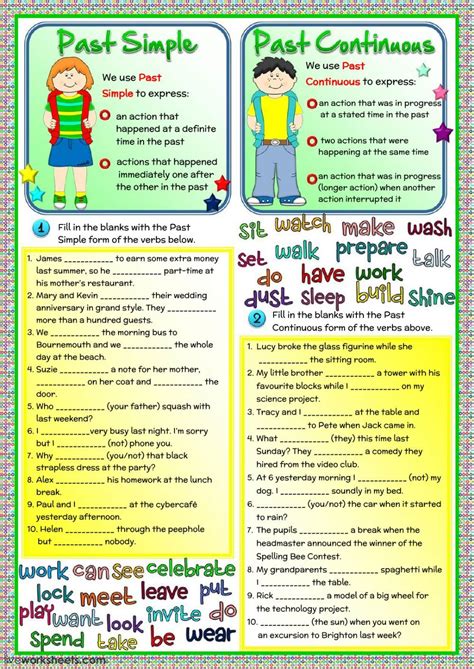 Past Simple
We use Past
Simple to express:
an action that
happened at a definite
time in the past
actions that happened
immediately one after
the other in the past
Past Continuous
We use Past
Continuous to express:
an action that was in progress
at a stated time in the past
two actions that were
happening at the same time
an action that was in progress
(longer action) when another
action interrupted it
1 Fill in the blanks with the Past
Simple form of the verbs below.
1. James ___________ to earn some extra money
last summer, so he ___________ part-time at
his mother's restaurant.
2. Mary and Kevin ___________ their wedding
anniversary in grand style. They ___________
more than a hundred guests.
3. We ___________ the morning bus to
Bournemouth and we ___________ the whole
day at the beach.
4. Suzie ___________ a note for her mother,
___________ on her coat and ___________ the
door.
5. Who ___________ (your father) squash with
last weekend?
6. I ___________very busy last night. I'm sorry
but I ___________ (not) phone you.
7. Why ___________ (you/not) that black
strapless dress at the party?
8. Alex ___________ his homework at the lunch
break.
9. Paul and I ___________ at the cybercafé
yesterday afternoon.
10. Helen ___________ through the peephole
but ___________ nobody.
work can see celebrate
lock meet leave put
play want look invite do
spend take be wear
sit watch make wash
set walk prepare talk
do have work
dust sleep build shine
2 Fill in the blanks with the Past
Continuous form of the verbs above.
1. Lucy broke the glass figurine while she
___________ the sitting room.
2. My little brother ___________ a tower with his
favourite blocks while I ___________ on my
science project.
3. Tracy and I ___________ at the table and
___________ to Pete when Jack came in.
4. What ___________ (they) this time last
Sunday? They ___________ a comedy they
hired from the video club.
5. At 6 yesterday morning I ___________ (not) my
dog. I ___________ soundly in my bed.
6. ___________ (you/not) the car when it started
to rain?
7. The pupils ___________ a break when the
headmaster announced the winner of the
Spelling Bee Contest.
8. My grandparents ___________ spaghetti while
I ___________ the table.
9. Rick ___________ a model of a big wheel for
the technology project.
10. ___________ (the sun) when you went on
an excursion to Brighton last week?
liveworksheets.com